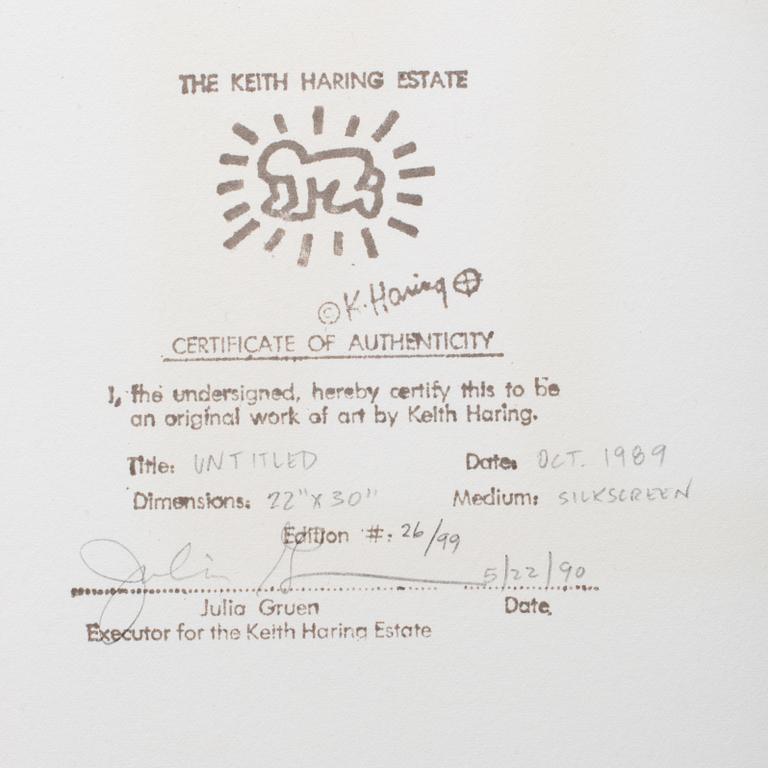 THE KEITH HARING ESTATE
© K. Haring
CERTIFICATE OF AUTHENTICITY
I, the undersigned, hereby certify this to be
an original work of art by Keith Haring.
Title: UNTITLED Date: OCT. 1989
Dimensions: 22" X 30" Medium: SILKSCREEN
Edition #: 26/99
Julia G 5/22/90
Julia Gruen Date
Executor for the Keith Haring Estate